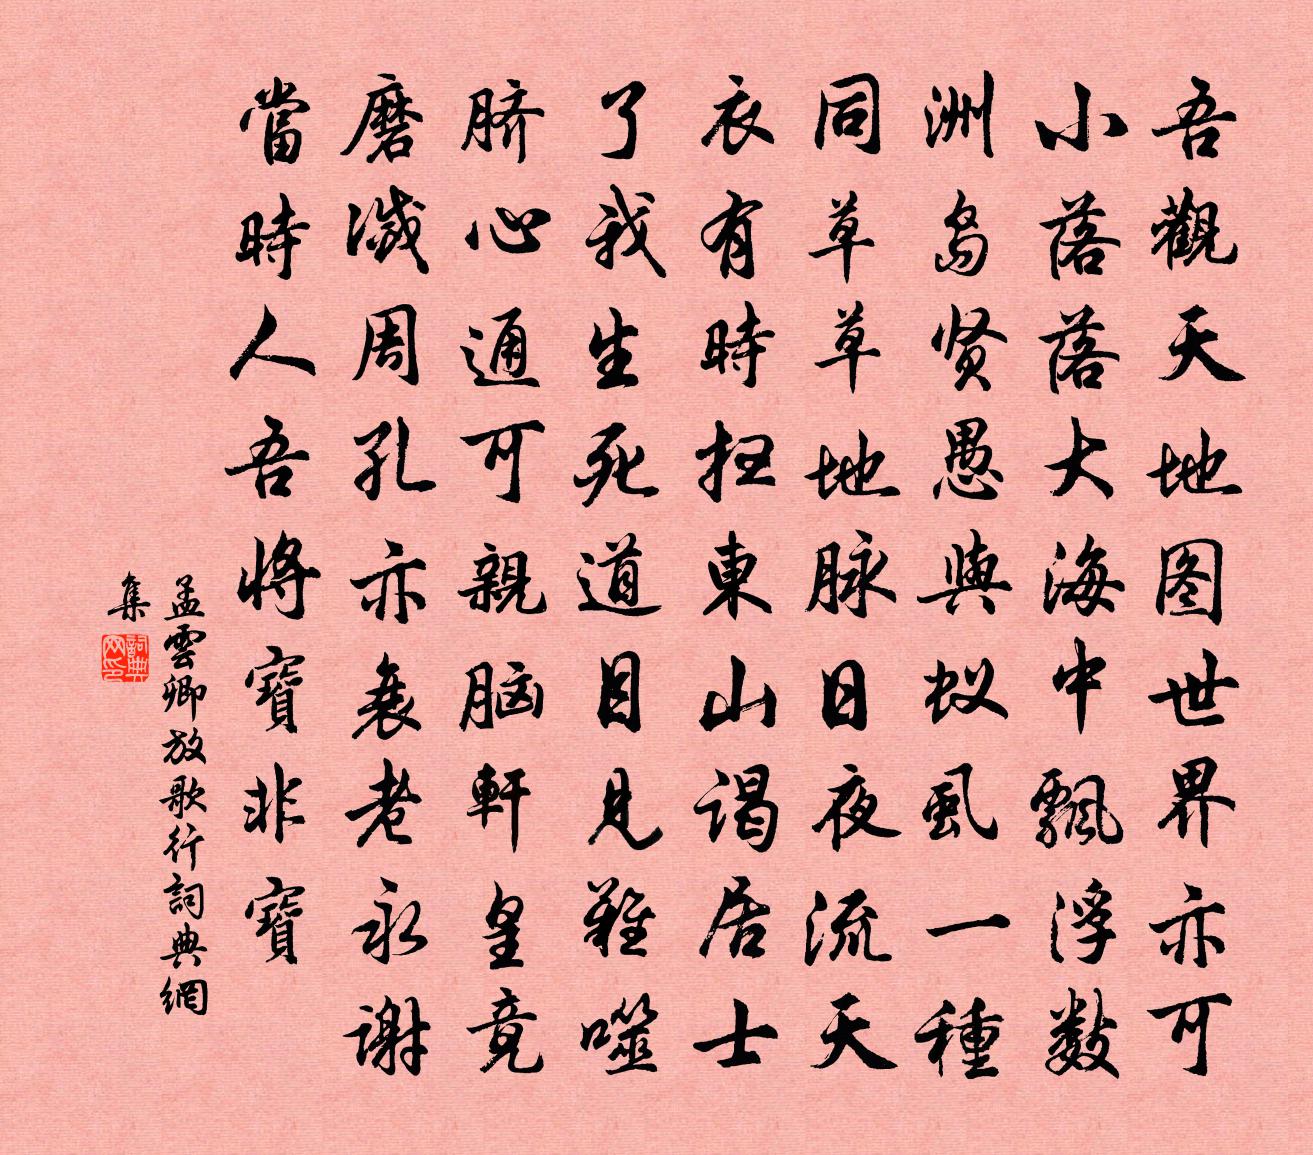 吾觀天地图世界亦可
小落落大海中飄浮数
洲岛贤愚與蚁虱一種
同草草地脉日夜流天
衣有時扫東山谒居士
了我生死道目見難噬
脐心通可親脑軒皇竟
磨滅周孔亦衰老永谢
當時人吾將寶非寶
孟雲卿放歌行詞典網
集
詞典
网印